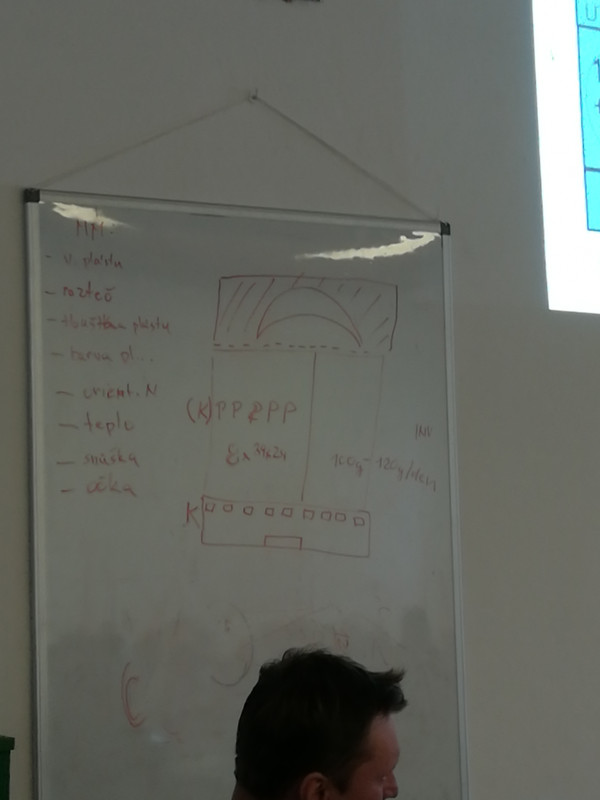 MM:
- v. plástu
- rozteč
- tloušťka plástu
- barva pl...
- orient. N
- teplo
- snůška
- očka
(K) PP PP
39x24
INV
100g - 120g/den
K